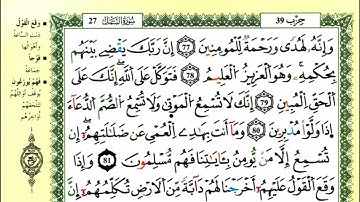 حِزْب 39
سُورَةُ النَّمْلِ 27
وَإِنَّهُ لَهُدًى وَرَحْمَةٌ لِّلْمُؤْمِنِينَ 77 إِنَّ رَبَّكَ يَقْضِي بَيْنَهُم
بِحُكْمِهِ وَهُوَ الْعَزِيزُ الْعَلِيمُ 78 فَتَوَكَّلْ عَلَى اللَّهِ إِنَّكَ عَلَى
الْحَقِّ الْمُبِينِ 79 إِنَّكَ لَا تُسْمِعُ الْمَوْتَى وَلَا تُسْمِعُ الصُّمَّ الدُّعَاءَ
إِذَا وَلَّوْا مُدْبِرِينَ 80 وَمَا أَنتَ بِهَادِي الْعُمْيِ عَن ضَلَالَتِهِمْ إِن
تُسْمِعُ إِلَّا مَن يُؤْمِنُ بِآيَاتِنَا فَهُم مُّسْلِمُونَ 81 وَإِذَا
وَقَعَ الْقَوْلُ عَلَيْهِمْ أَخْرَجْنَا لَهُمْ دَابَّةً مِّنَ الْأَرْضِ تُكَلِّمُهُمْ إِنَّ
وَقَعَ الْقَوْلُ
فَوْجًا
فَهُمْ يُوزَعُونَ